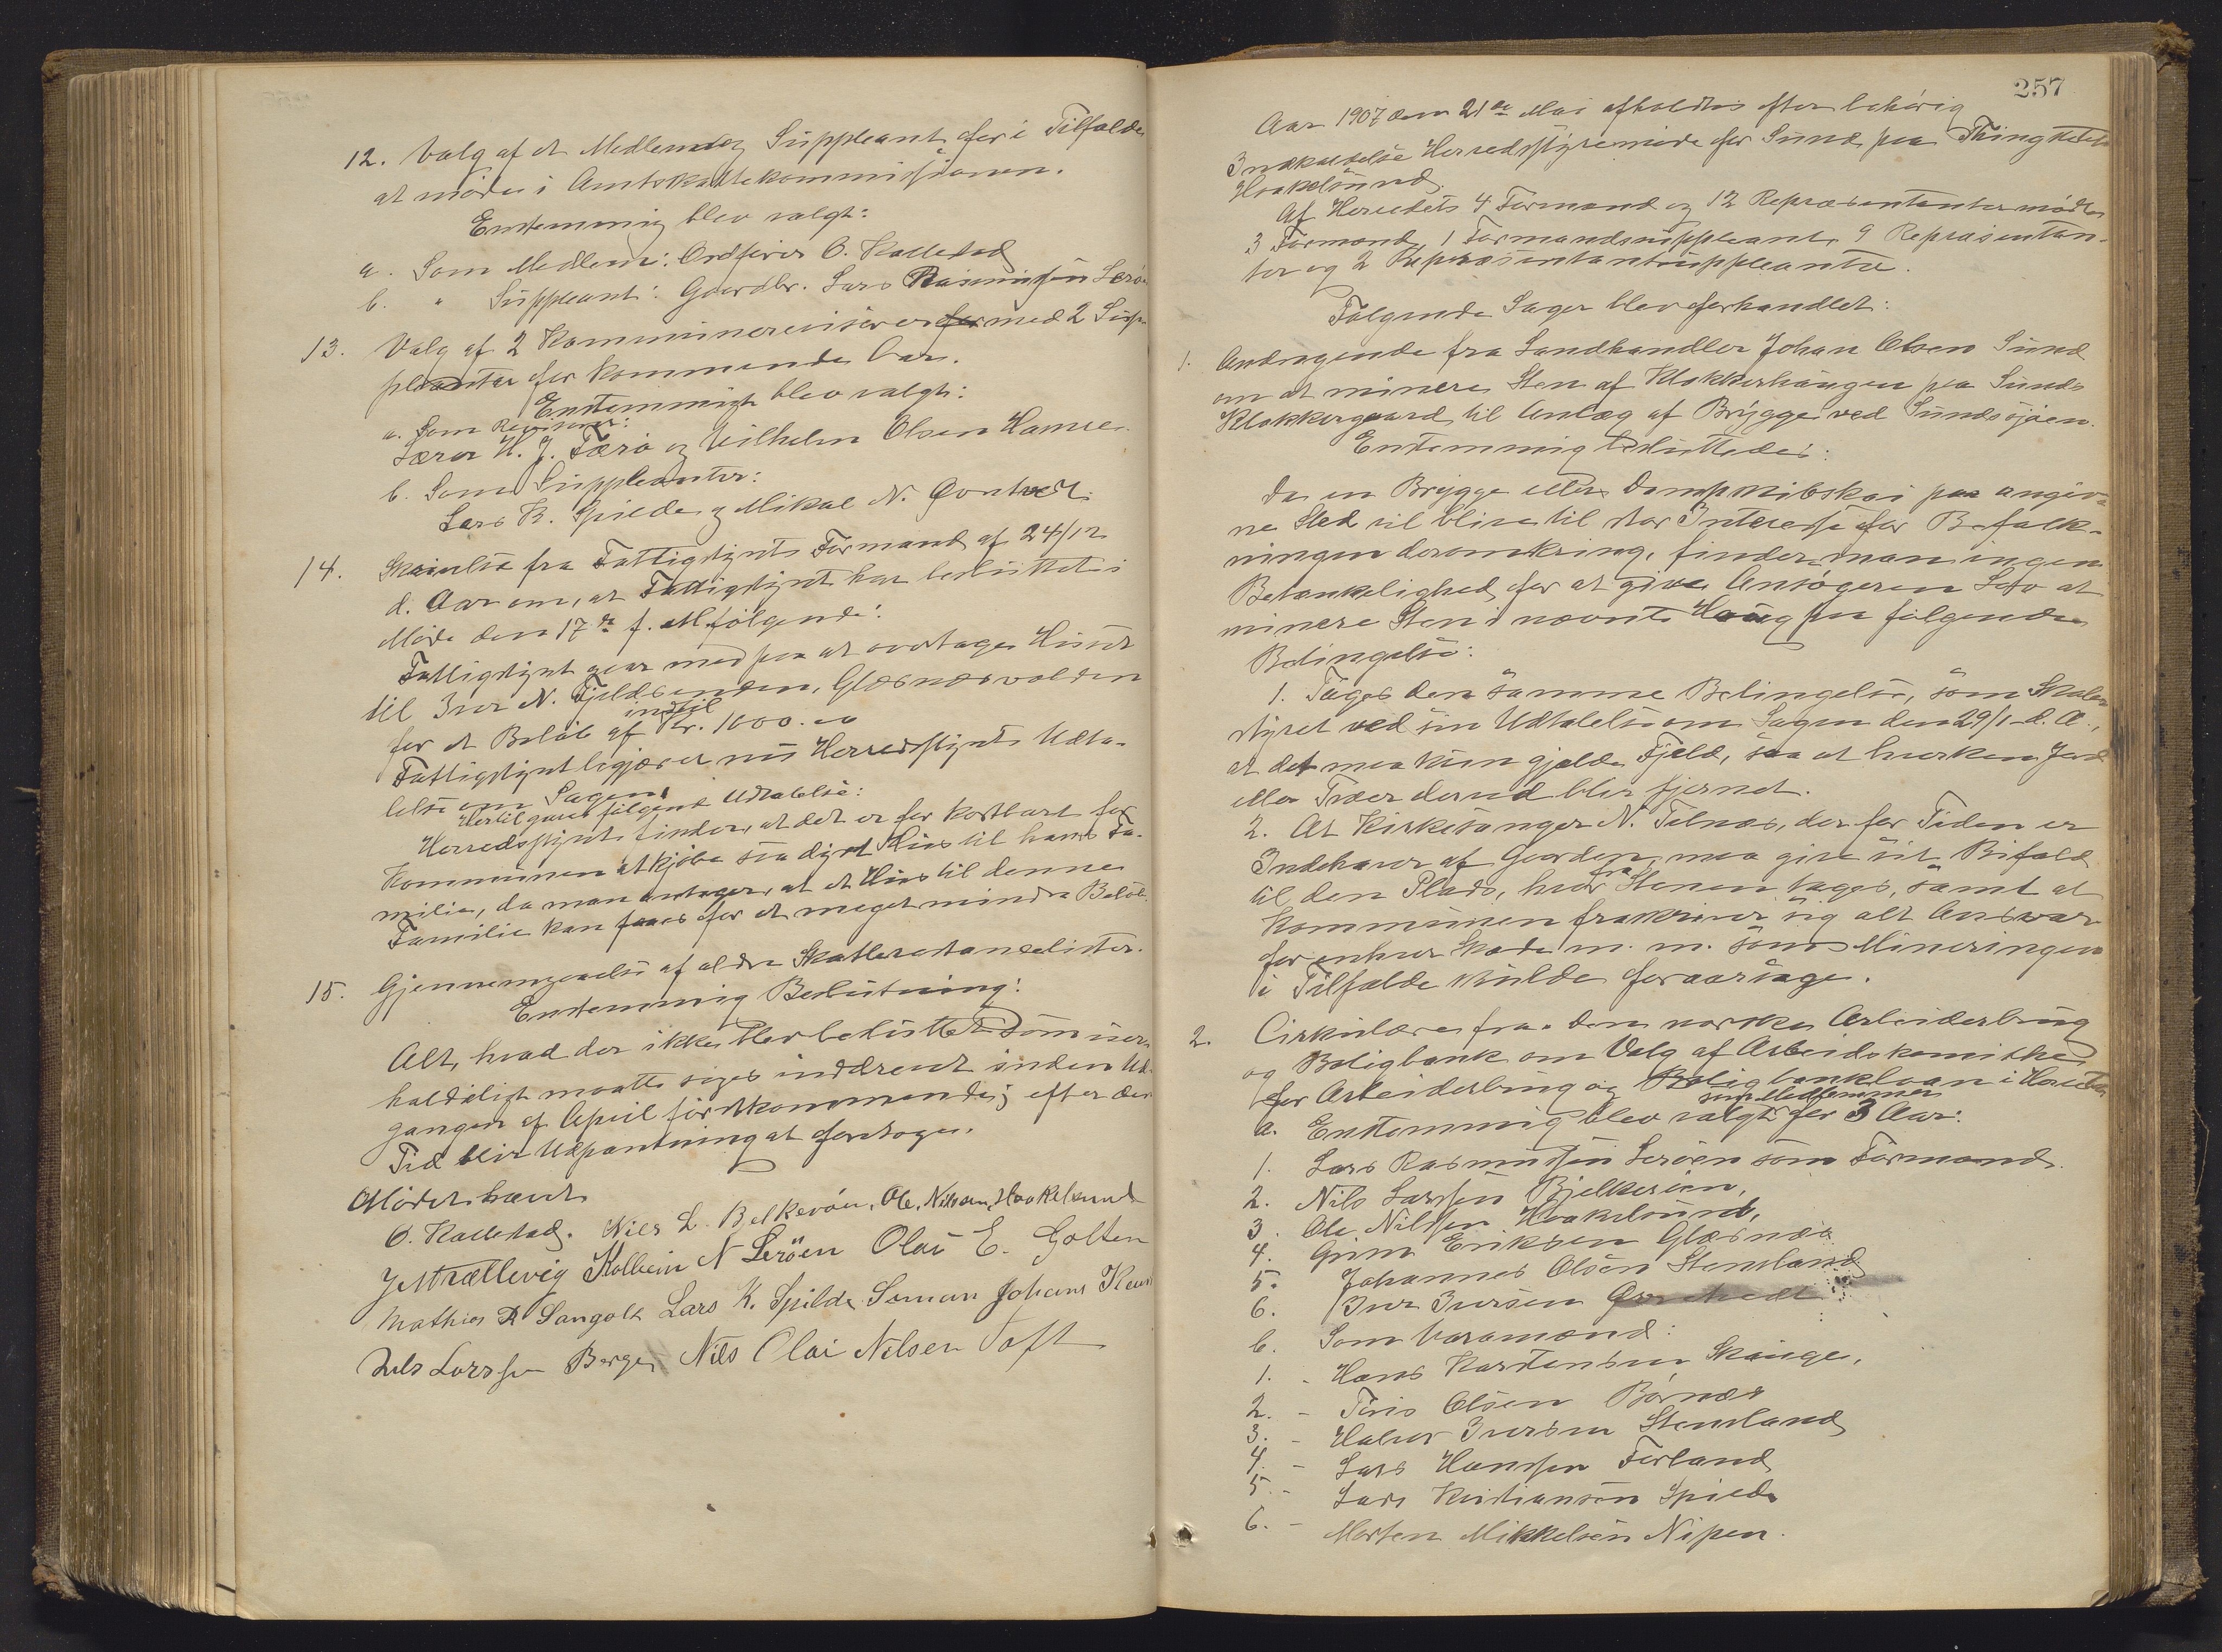 12. Valg af et Medlem og Suppleant for i Tilfælde
at møde i Amtsskattekommissionen.
Enstemmig blev valgt:
a. Som Medlem: Ordfører O. Kallestad
b. " Suppleant: Gaardbr. Lars Rasmussen Lerøen
13. Valg af 2 Kommunerevisorer for med 2 Sup-
pleanter for kommende Aar.
Enstemmigt blev valgt:
a. Som Revisorer:
Lærer H. J. Færø og Vilhelm Olsen Hamre.
b. Som Suppleanter:
Lars K. Spilde og Mikal N.
14. Skrivelse fra Fattigstyrets Formand af 24/12
d. Aar om, at Fattigstyret har besluttet i
Møde den 17de f. M. følgende:
Fattigstyret gaar med paa at overtage Huset
til Iver N. Fjeldsenden, Glesnesvolden
indtil
for et Beløb af Kr. 1000.00
Fattigstyret begjærer nu Herredsstyrets Udta-
lelse om Sagen.
Hertil gaves følgende Udtalelse:
Herredsstyret finder, at det er for kostbart for
Kommunen at kjøbe saa dyrt Hus til hans Fa-
milie, da man antager, at et Hus til denne
Familie kan faaes for et meget mindre Beløb.
15. Gjennemgaaelse af ældre Skatterestancelister.
Enstemmig Beslutning:
Alt, hvad der ikke blev besluttet som uer-
holdeligt maatte søges inddrevet inden Ud-
gangen af April førstkommende; efter den
Tid blir Udpantning at foretage.
Mødet hævet
O. Kallestad. Nils L. Bjelkerøen, Ole Nilssen, Haakelsund
J Strætlevig Kolbein N Lerøen Olai E. Golten
Mathias R Sangolt Lars K. Spilde Johans
Nils Larssen Berge, Nils Olai Nilsen Toft
257
Aar 1907 den 21de Mai afholdtes efter behørig
Indkaldelse Herredsstyremøde for Sund paa Thingstedet
Haakelsund.
Af Herredets 4 Formænd og 12 Repræsentanter mødte
3 Formænd, 1 Formandssuppleant, 9 Repræsentan-
ter og 2 Repræsentantsuppleanter.
Følgende Sager blev forhandlet:
1. Andragende fra Landhandler Johan Olsen Sund
om at minere Sten af Klokkerhaugen paa Sunds
Klokkergaard til Anlæg af Brygge ved Sundsøjen.
Enstemmig besluttedes:
Da en Brygge eller Dampskibskai paa angiv-
ne Sted vil blive til stor Interesse for Befolk-
ningen deromkring, finder man ingen
Betænkelighed for at give Ansøgeren Lov at
minere Sten i nævnte Haug paa følgende
Betingelse:
1. Tages den samme Betingelse, som Skole-
styret ved sin Udtalelse om Sagen den 29/1 d. A.,
at det maa kun gjælde Fjeld, saa at hverken Jord
eller Træer derved blir fjernet.
2. At Kirkesanger N. Telnæs, der for Tiden er
Indehaver af Gaarden, maa give sit Bifald
til den Plads, hvor fra Stenen tages, samt at
Kommunen fraskriver sig alt Ansvar
for enhver Skade m. m. som Mineringen
i Tilfælde skulde foraarsage.
2. Cirkulære fra den norske Arbeiderbrug
og Boligbank om Valg af Arbeidskomithe
for Arbeiderbrug og Boligbanklaan i Herredet
som Medlemmer
a. Enstemmig blev valgt for 3 Aar:
1. Lars Rasmussen Lerøen som Formand.
2. Nils Larssen Bjelkerøen,
3. Ole Nilssen Haakelsund,
4. Grim Eriksen Glæsnæs
5. Johannes Olsen Stensland
6. Iver Iversen
b. Som Varamænd:
1. - Hans Karstensen Skauge,
2. - Tøris Olsen Børnæs
3. - Halvor Iversen Stensland
4. - Lars Hanssen Førland
5. - Lars Kristiansen Spilde
6. - Morten Mikkelsen Nipen.